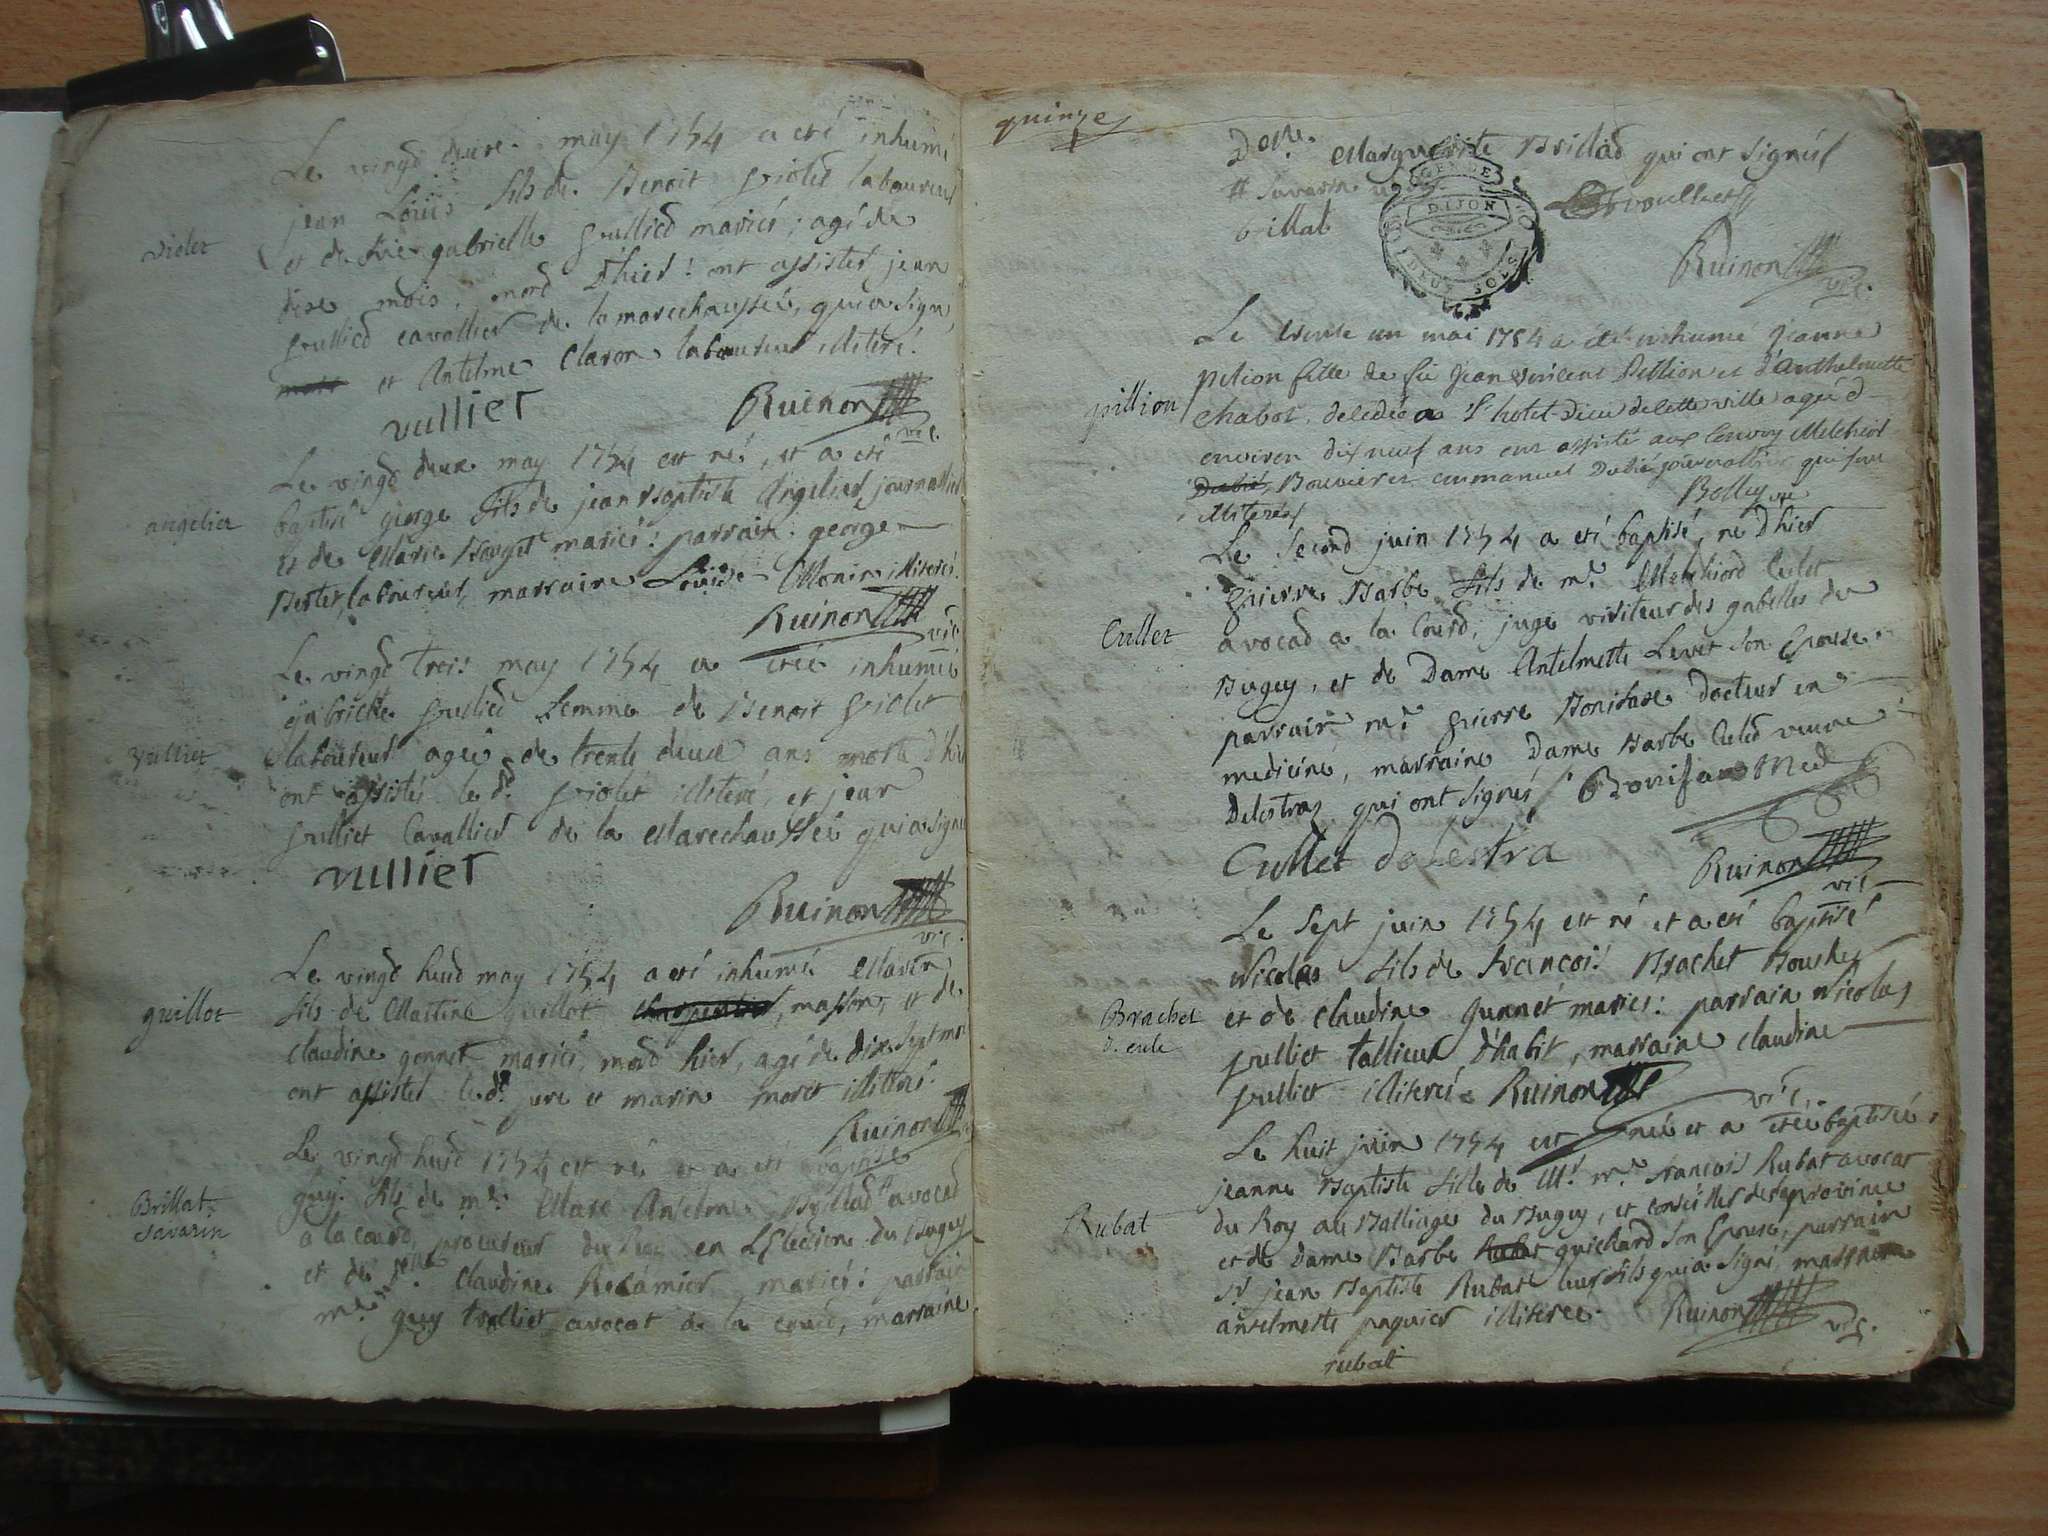 Le vingd deuxe may 1754 a eté inhumé
jean Louis fils de Benoit violet laboureur
violet
et de gabrielle vullied mariés; agé de
dixe mois, mord d'hier: ont assistes jean
vullied cavallier de la marechaussée, qui a signé,
et Antelme Claron laboureur illiteré.
vullier Ruinon vic.
Le vingd deux may 1754 est né, et a eté
angelier
baptisé george fils de jean baptiste Angelier journallier
et de Marie Bouget mariés: parrain george
Bertet laboureur, marraine Louise Monin illiterés.
Ruinon vic
Le vingd trois may 1754 a etée inhumée
gabrielle vullied femme de Benoit violet
vulliet
laboureur agée de trente deux ans morte d'hier
ont assistés le dt violet illiteré, et jean
vulliet Cavallier de la Marechaussée qui a signé
vullier
Ruinon vic.
Le vingd huid may 1754 a eté inhumé Marin
guillot
fils de Martin guillot charpentier, masson, et de
Claudine gonnet mariés, mord hier, agé de dix sept mois
ont assistes le dt pere et marin moret illiterés.
Ruinon
Le vingd huid 1754 est né et a eté baptisé
Brillat
Savarin
guy fils de me. Marc Anselme Brillad # avocad
a la courd, procureur du Roy en L'Election du Bugey
et de delle Claudine Recamier, mariés: parrain
me guy trolliet avocat a la courd, marraine
quinze
Delle. Marguerite Brillad qui ont signés
# Savarin
brillat
DIJON
Ruinon vic.
Le trente un mai 1754 a été inhume jeanne
pillion
Pillion fille de fû jean vincent Pillion et d'Anthelmette
Chabot, decedée a L'hotel Dieu de cette ville agée d
environ dix neuf ans ont assisté aux Convoy Melchiol
Dubié, Bouvier et emmanuel Dubié journallier qui sont
illiterés
Bolley vic
Le Second juin 1754 a eté baptisé, né d'hier
pierre Barbe fils de me. Melchiord Culet
Cullet
avocad a la Courd, juge visiteur des gabelles du
Bugey, et de Dame Antelmette Levet son Epouse.
parrain me. pierre Bonifase Docteur en
medicine, marraine Dame Barbe Culed veuve
Delestraz qui ont signés / Bonifase Med
Cullet de Lestra
Ruinon vic
Le Sept juin 1754 est né et a eté baptisé
Nicolas fils de François Brachet Boucher
Brachet
et de Claudine gunnet mariés: parrain Nicolas
vulliet tallieur d'habit, marraine Claudine
vulliet illiterés. Ruinon vic.
Le huit juin 1754 est née et a etée baptisée,
jeanne Baptiste fille de Mr. me. françois Rubat avocat
Rubat
du Roy au Balliage du Bugey, et conseiller de la province
et de Dame Barbe Rubat guichard son Epouse, parrain
Sr. jean Baptiste Rubat leur fils qui a signé, marraine
antelmette paquier illiterée. Ruinon vic.
rubat